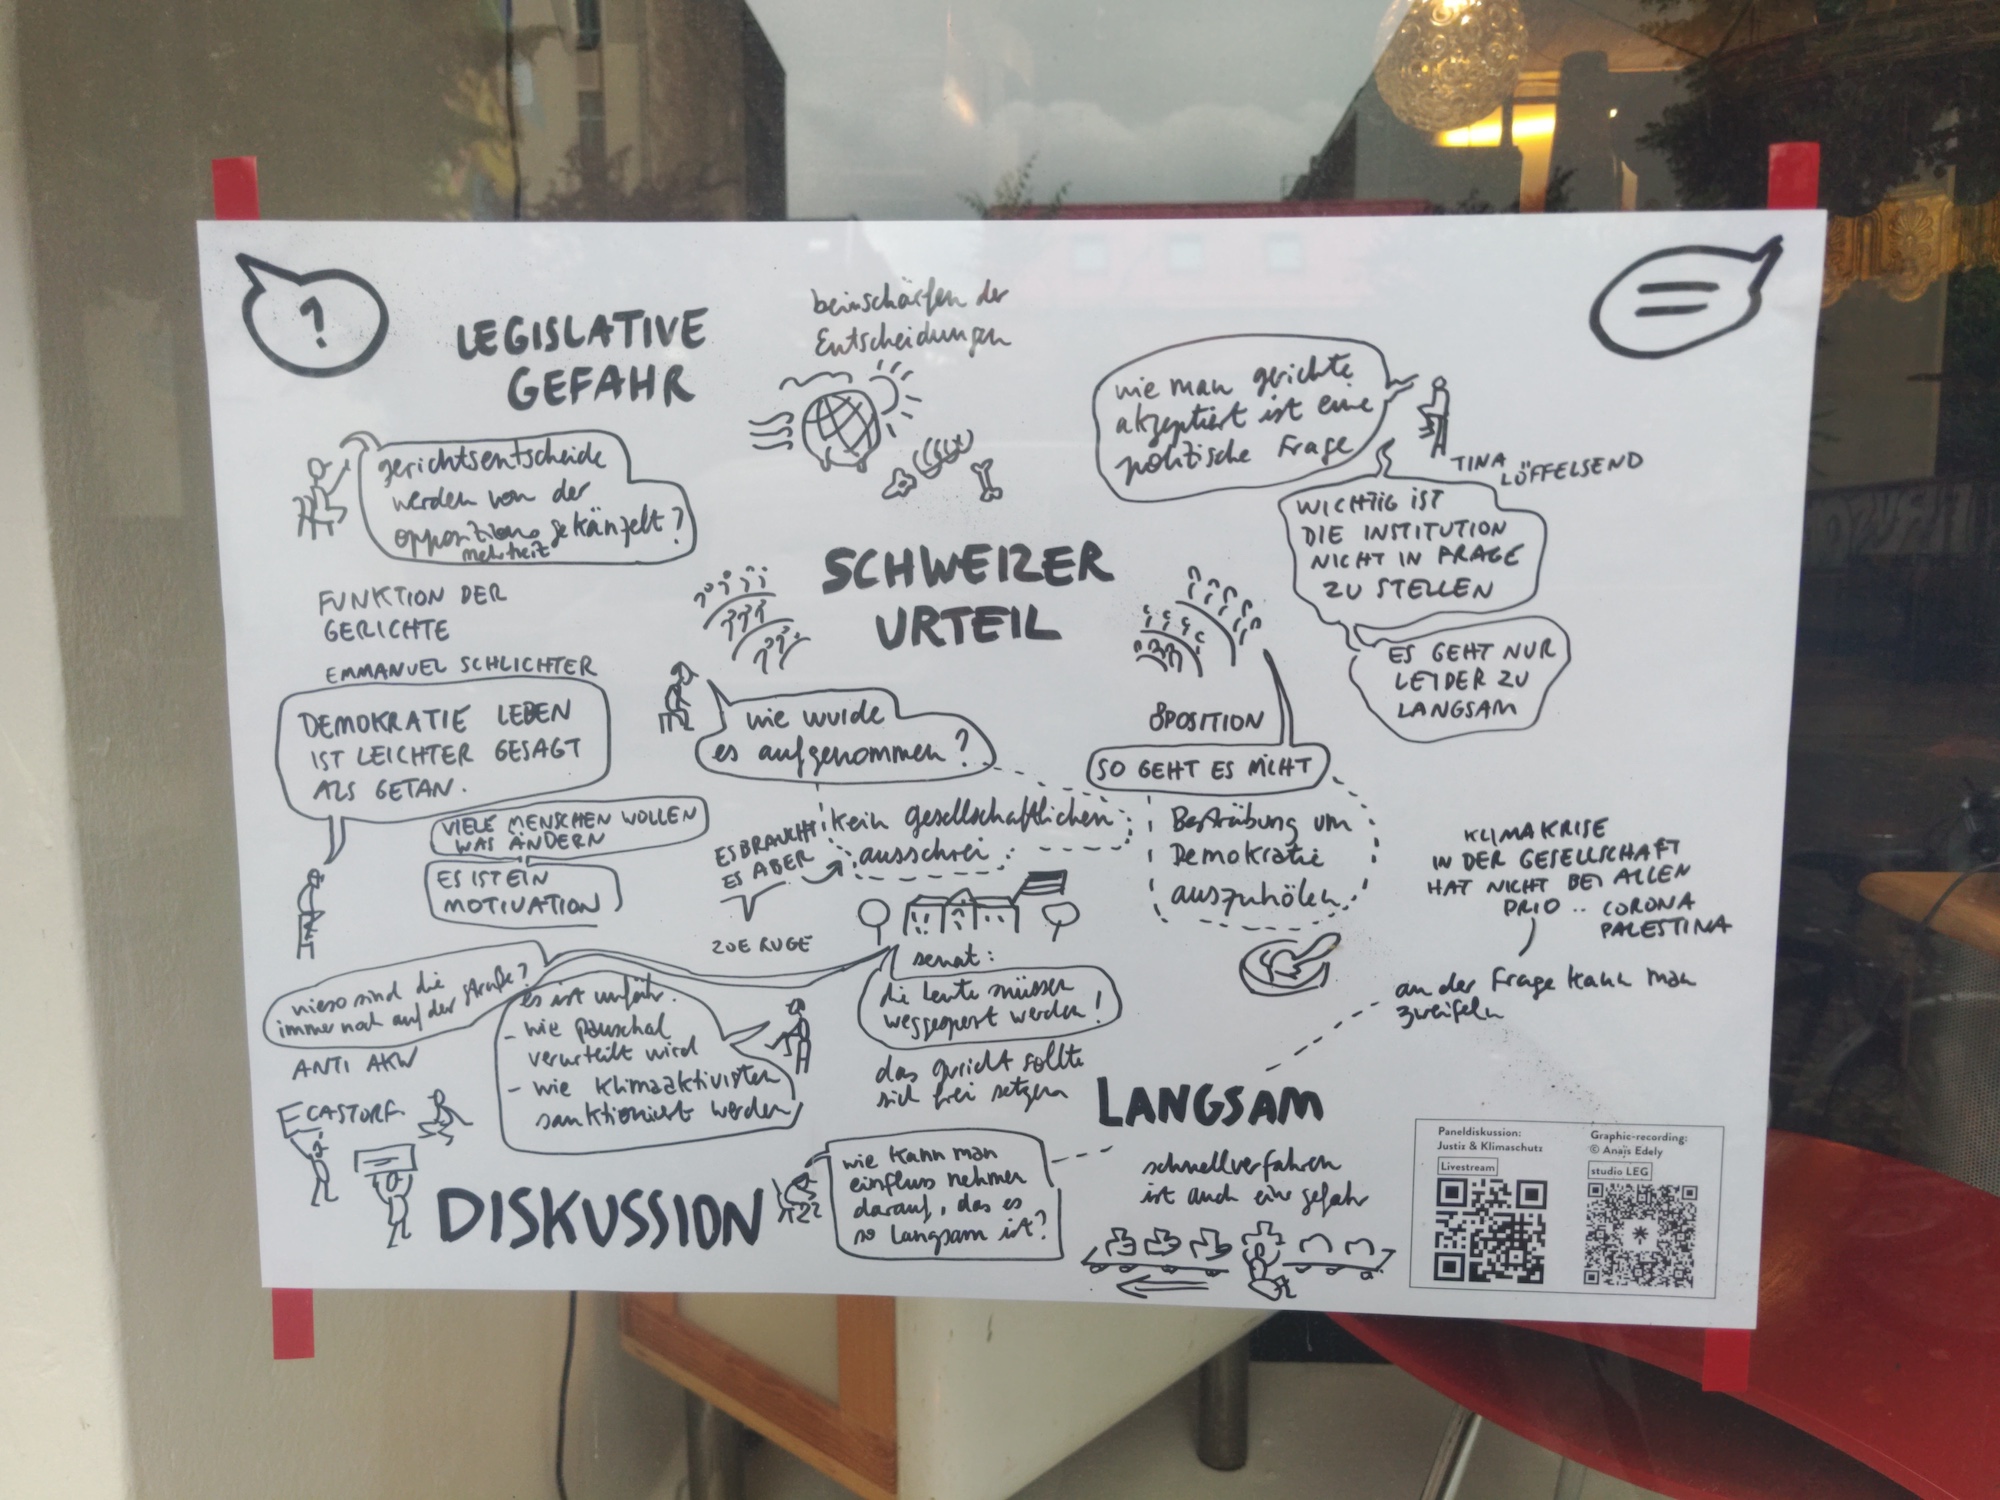 ?
LEGISLATIVE
GEFAHR
beinschärfen der
Entscheidungen
gerichtsentscheide
werden von der
oppositions gekänzelt?
mehrheit
wie man gerichte
akzeptiert ist eine
politische Frage
TINA
LÖFFELSEND
WICHTIG IST
DIE INSTITUTION
NICHT IN FRAGE
ZU STELLEN
ES GEHT NUR
LEIDER ZU
LANGSAM
FUNKTION DER
GERICHTE
EMMANUEL SCHLICHTER
DEMOKRATIE LEBEN
IST LEICHTER GESAGT
ALS GETAN.
VIELE MENSCHEN WOLLEN
WAS ÄNDERN
ES IST EIN
MOTIVATION
SCHWEIZER
URTEIL
wie wurde
es aufgenommen?
kein gesellschaftlichen
ausschrei
ES BRAUCHT
ES ABER
ZOE RUGE
OPOSITION
SO GEHT ES NICHT
Besträbung um
Demokratie
auszuhölen
KLIMAKRISE
IN DER GESELLSCHAFT
HAT NICHT BEI ALLEN
PRIO .. CORONA
PALESTINA
an der Frage kann man
zweifeln
wieso sind die
immer noch auf der straße?
ANTI AKW
CASTOR
es ist unfair.
- wie pauschal
verurteilt wird
- wie Klimaaktivisten
sanktioniert werden
senat:
die leute müssen
weggesperrt werden!
das gericht sollte
sich frei setzen
DISKUSSION
wie kann man
einfluss nehmen
darauf, das es
so langsam ist?
LANGSAM
schnellverfahren
ist auch eine gefahr
Paneldiskussion:
Justiz & Klimaschutz
Livestream
Graphic-recording:
© Anaïs Edely
studio LEG